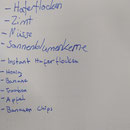 - Haferflocken
- Zimt
- Nüsse
- Sonnenblumenkerne
- Instant Haferflocken
- Honig
- Banane
- Joghurt
- Apfel
- Bananen Chips